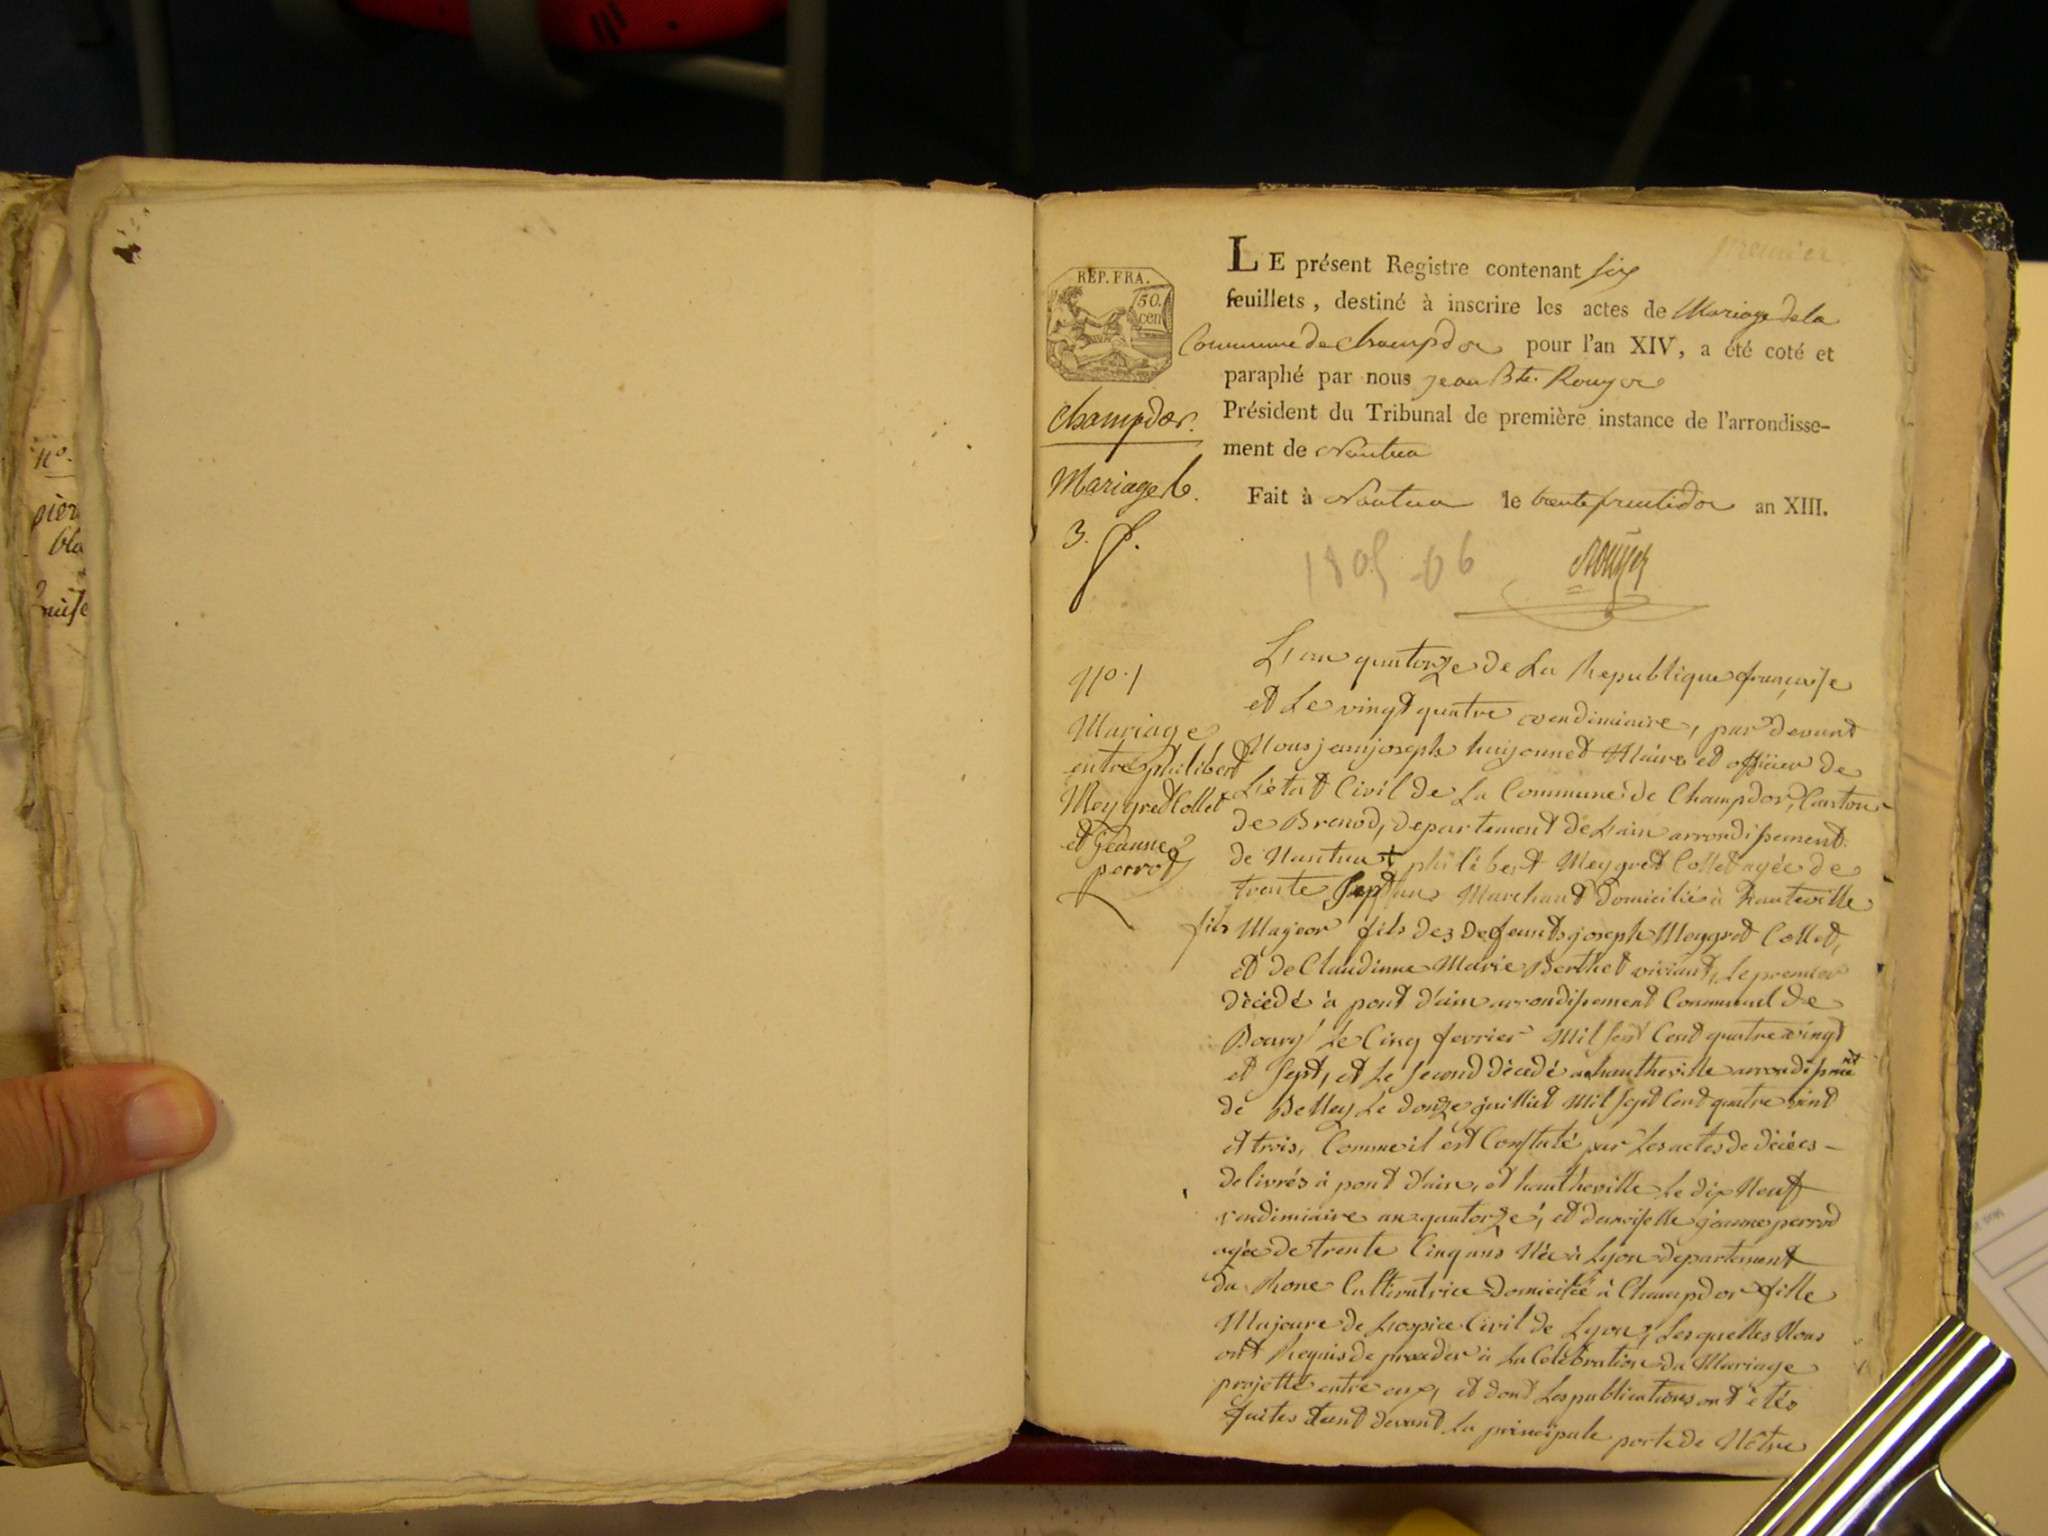 nº.
pier
bla
REP. FRA.
50.
cen
premier
LE présent Registre contenant six
feuillets, destiné à inscrire les actes de Mariage de la
Commune de Champdor pour l'an XIV, a été coté et
paraphé par nous jean Bte. Rouyer
Président du Tribunal de première instance de l'arrondisse-
ment de Nantua
Fait à Nantua le trente fructidor an XIII.
Champdor.
Mariages.
3.
1805-06
Rouyer
Nº. 1
Mariage
entre philibert
Meygret Collet
et Jeanne
perrod
L'an quatorze de La Republique françaisse
et Le vingt quatre vendimiaire, par devant
Nous jean joseph huijonnet Maire et officier de
L'êtat Civil de La Commune de Champdor, Canton
de Brenod, departement de L'ain arrondissement
de Nantua + philibert Meygret Collet agée de
trente Sept ans Marchant domicilié à hauteville
fils Majeor fils des defeunts joseph Meygret Collet,
et de Claudinne Marie Berthet viviant, Le premier
dècedé à pont d'ain arrondissement Communal de
Bourg Le Cinq fevrier Mil sept Cent quatre vingt
et Sept, et Le Second dècedé a hautheville arrondissment
de Belley Le douze juilliet Mil Sept Cent quatre vint
et trois, Comme il est Constaté par Les actes de décées
delivrés à pont d'ain, et hautheville Le dix Neuf
vendimiaire an quatorze, et demoiselle jeanne perrod
agée de trente Cinq ans Née à Lyon departement
du Rhone Cultivatrice domiciliée à Champdor fille
Majeure de L'ospice Civil de Lyon; Lesquelles Nous
ont Requis de proceder à La Celèbration du Mariage
projetté entre eux, et dont Les publications ont êtés
faites devant La principale porte de Nôtre